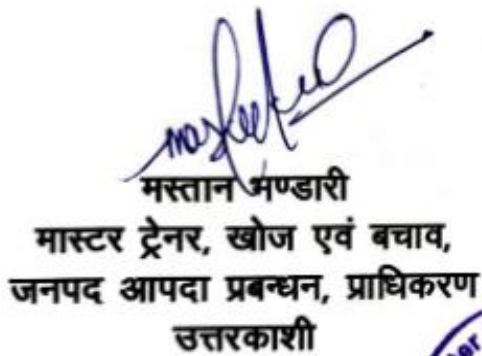 मस्तान भण्डारी
मास्टर ट्रेनर, खोज एवं बचाव,
जनपद आपदा प्रबन्धन, प्राधिकरण
उत्तरकाशी